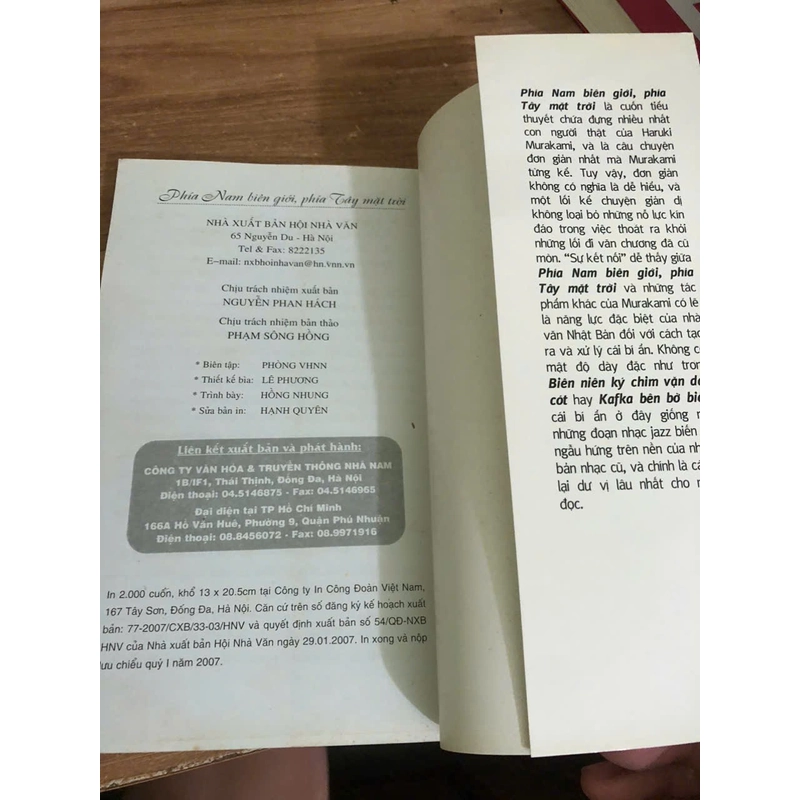 Phía Nam biên giới, phía Tây mặt trời
NHÀ XUẤT BẢN HỘI NHÀ VĂN
65 Nguyễn Du - Hà Nội
Tel & Fax: 8222135
E-mail: nxbhoinhavan@hn.vnn.vn
Chịu trách nhiệm xuất bản
NGUYỄN PHAN HÁCH
Chịu trách nhiệm bản thảo
PHẠM SÔNG HỒNG
* Biên tập: PHÒNG VHNN
* Thiết kế bìa: LÊ PHƯƠNG
* Trình bày: HỒNG NHUNG
* Sửa bản in: HẠNH QUYÊN
Liên kết xuất bản và phát hành:
CÔNG TY VĂN HÓA & TRUYỀN THÔNG NHÃ NAM
1B/IF1, Thái Thịnh, Đống Đa, Hà Nội
Điện thoại: 04.5146875 - Fax: 04.5146965
Đại diện tại TP Hồ Chí Minh
166A Hồ Văn Huê, Phường 9, Quận Phú Nhuận
Điện thoại: 08.8456072 - Fax: 08.9971916
In 2.000 cuốn, khổ 13 x 20.5cm tại Công ty In Công Đoàn Việt Nam,
167 Tây Sơn, Đống Đa, Hà Nội. Căn cứ trên số đăng ký kế hoạch xuất
bản: 77-2007/CXB/33-03/HNV và quyết định xuất bản số 54/QĐ-NXB
HNV của Nhà xuất bản Hội Nhà Văn ngày 29.01.2007. In xong và nộp
lưu chiểu quý I năm 2007.
Phía Nam biên giới, phía
Tây mặt trời là cuốn tiểu
thuyết chứa đựng nhiều nhất
con người thật của Haruki
Murakami, và là câu chuyện
đơn giản nhất mà Murakami
từng kể. Tuy vậy, đơn giản
không có nghĩa là dễ hiểu, và
một lối kể chuyện giản dị
không loại bỏ những nỗ lực kín
đáo trong việc thoát ra khỏi
những lối đi văn chương đã cũ
mòn. "Sự kết nối" dễ thấy giữa
Phía Nam biên giới, phía
Tây mặt trời và những tác
phẩm khác của Murakami có lẽ
là năng lực đặc biệt của nhà
văn Nhật Bản đối với cách tạo
ra và xử lý cái bí ẩn. Không c
mật độ dày đặc như tron
Biên niên ký chim vặn dâ
cót hay Kafka bên bờ biể
cái bí ẩn ở đây giống n
những đoạn nhạc jazz biến
ngẫu hứng trên nền của nh
bản nhạc cũ, và chính là cá
lại dư vị lâu nhất cho n
đọc.